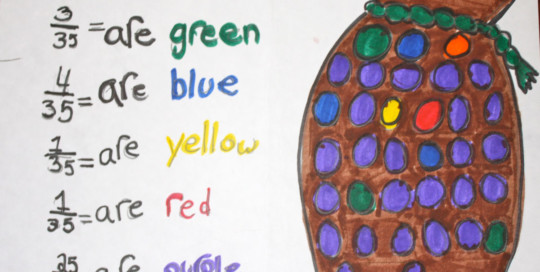 3/35 = are green
4/35 = are blue
1/35 = are yellow
1/35 = are red
25 are purple